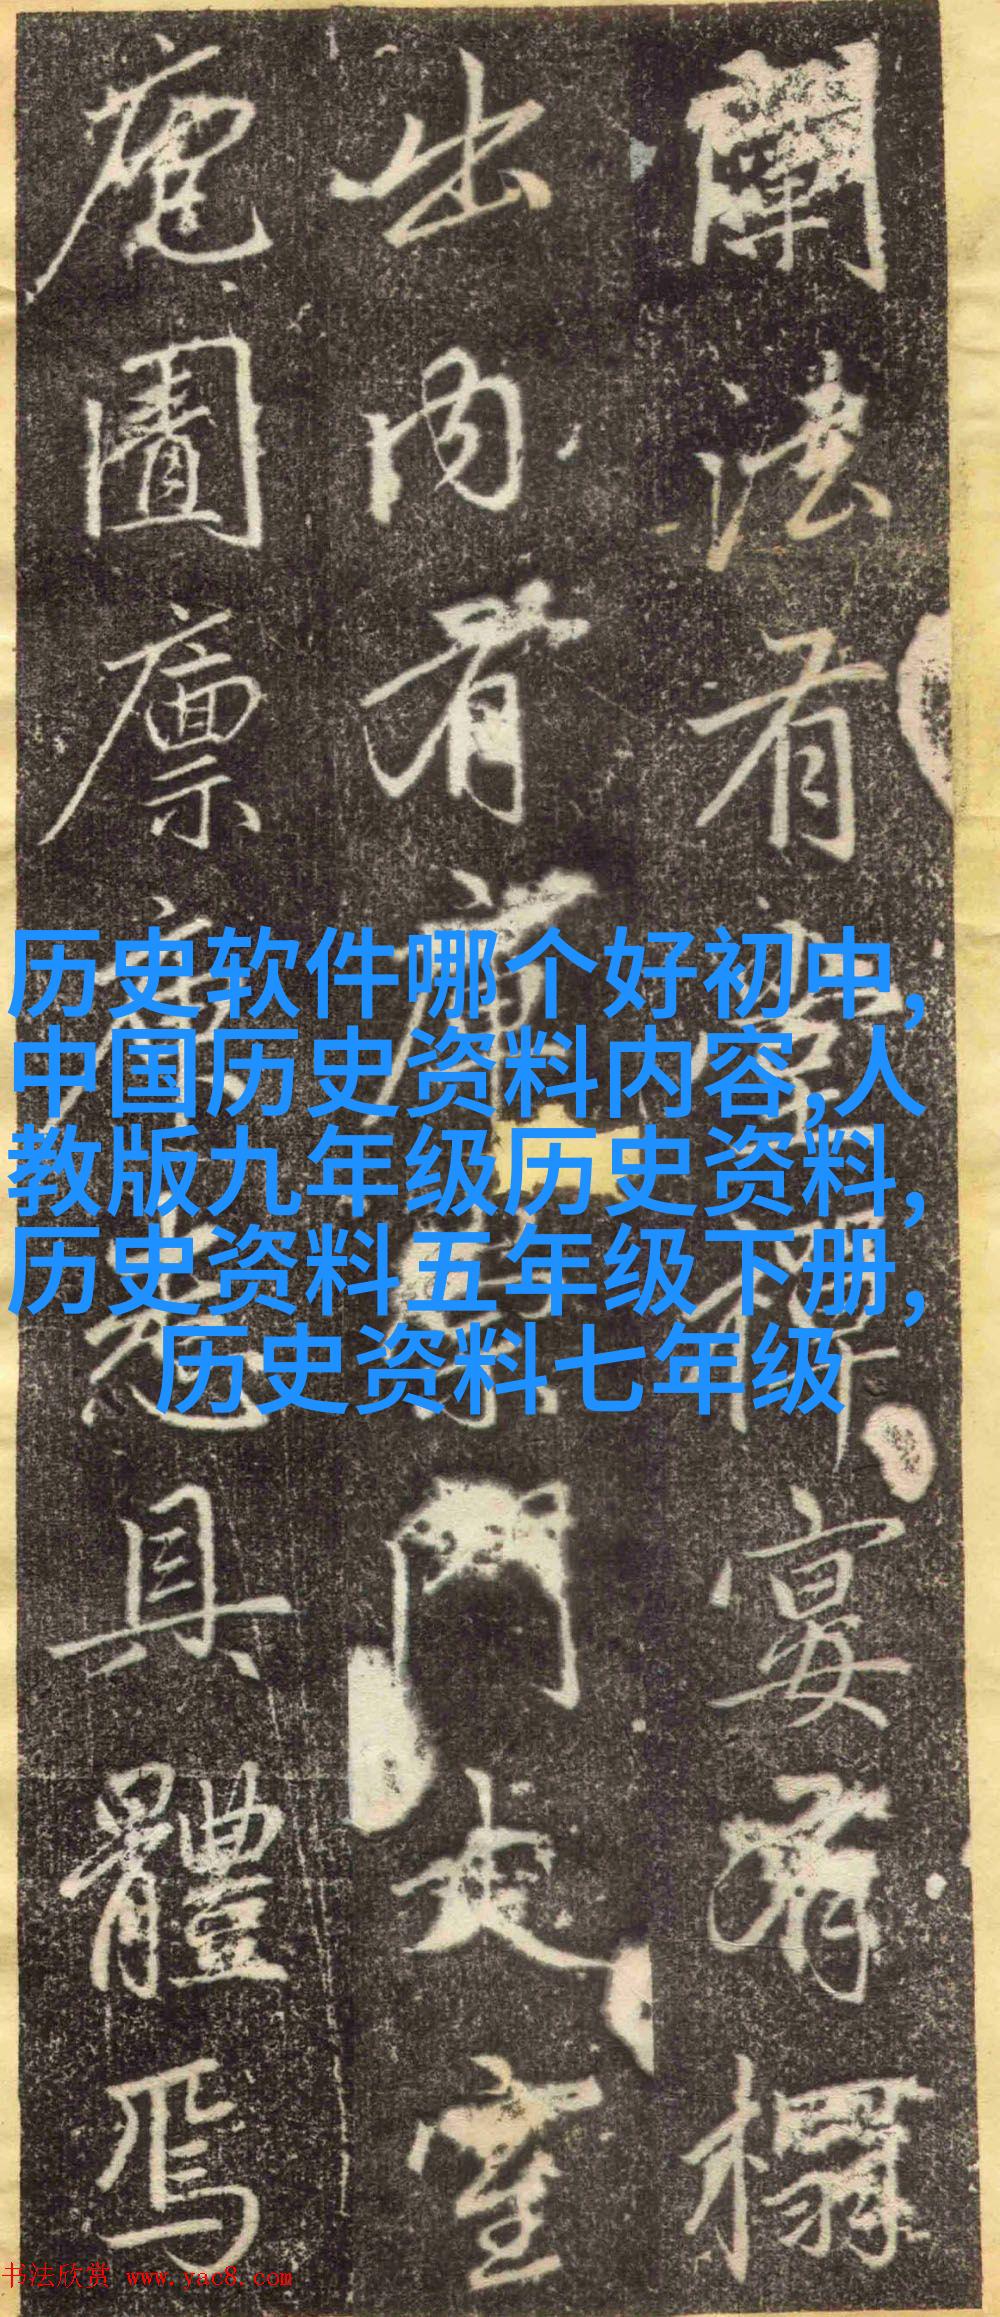 闡法有
宴有榻
出內有
門走室
庖圊廪
具體焉
历史软件哪个好初中,
中国历史资料内容,人
教版九年级历史资料,
历史资料五年级下册,
历史资料七年级
书法欣赏 www.yac8.com